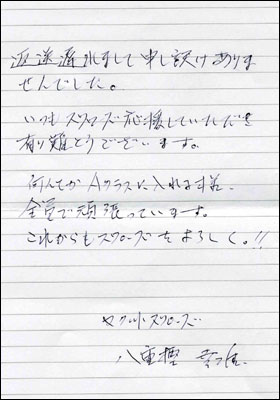 返送遅れまして申し訳けありま
せんでした。
いつもスワローズ応援していただき
有り難とうございます。
何んとかAクラスに入れます様、
全員で頑張っています。
これからもスワローズをよろしく。!!
ヤクルトスワローズ
八重樫 幸雄